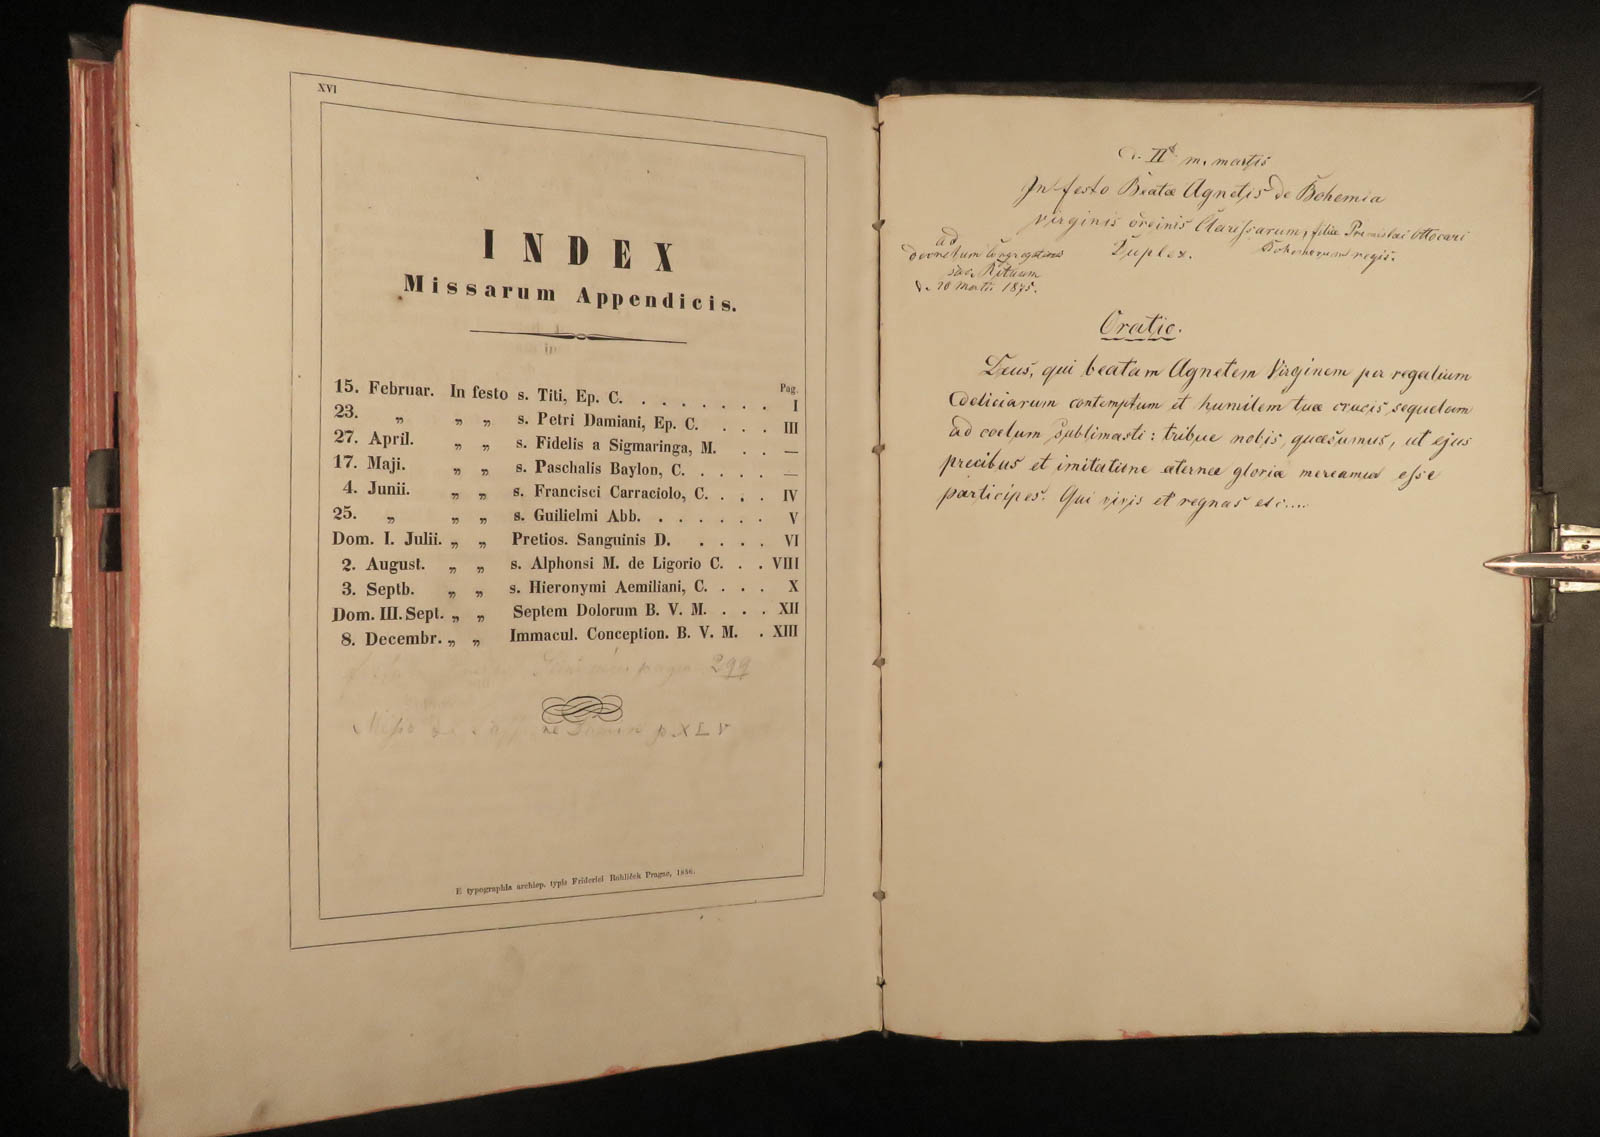 XVI
INDEX
Missarum Appendicis.
Pag.
15. Februar. In festo s. Titi, Ep. C. . . . . . . . I
23. „ „ „ s. Petri Damiani, Ep. C. . . . III
27. April. „ „ s. Fidelis a Sigmaringa, M. . . —
17. Maji. „ „ s. Paschalis Baylon, C. . . . . —
4. Junii. „ „ s. Francisci Carraciolo, C. . . . IV
25. „ „ „ s. Guilielmi Abb. . . . . . . V
Dom. I. Julii. „ „ Pretios. Sanguinis D. . . . . VI
2. August. „ „ s. Alphonsi M. de Ligorio C. . . VIII
3. Septb. „ „ s. Hieronymi Aemiliani, C. . . . X
Dom. III. Sept. „ „ Septem Dolorum B. V. M. . . . XII
8. Decembr. „ „ Immacul. Conception. B. V. M. . XIII
pagina 299
Missa p. XLV
E typographia archiep. typis Friderici Rohliček Pragae, 1856.
d. II m. martis
In festo Beatæ Agnetis de Bohemia
virginis ordinis Clarissarum, filiæ Premislai Ottocari
Bohemorum regis.
Duplex.
ad
decretum Congregationis
sac. Rituum
d. 10 Marti. 1875.
Oratio.
Deus, qui beatam Agnetem Virginem per regalium
deliciarum contemptum et humilem tuæ crucis sequelam
ad coelum sublimasti: tribue nobis, quæsumus, ut ejus
precibus et imitatione æternæ gloriæ mereamur esse
participes. Qui vivis et regnas etc....